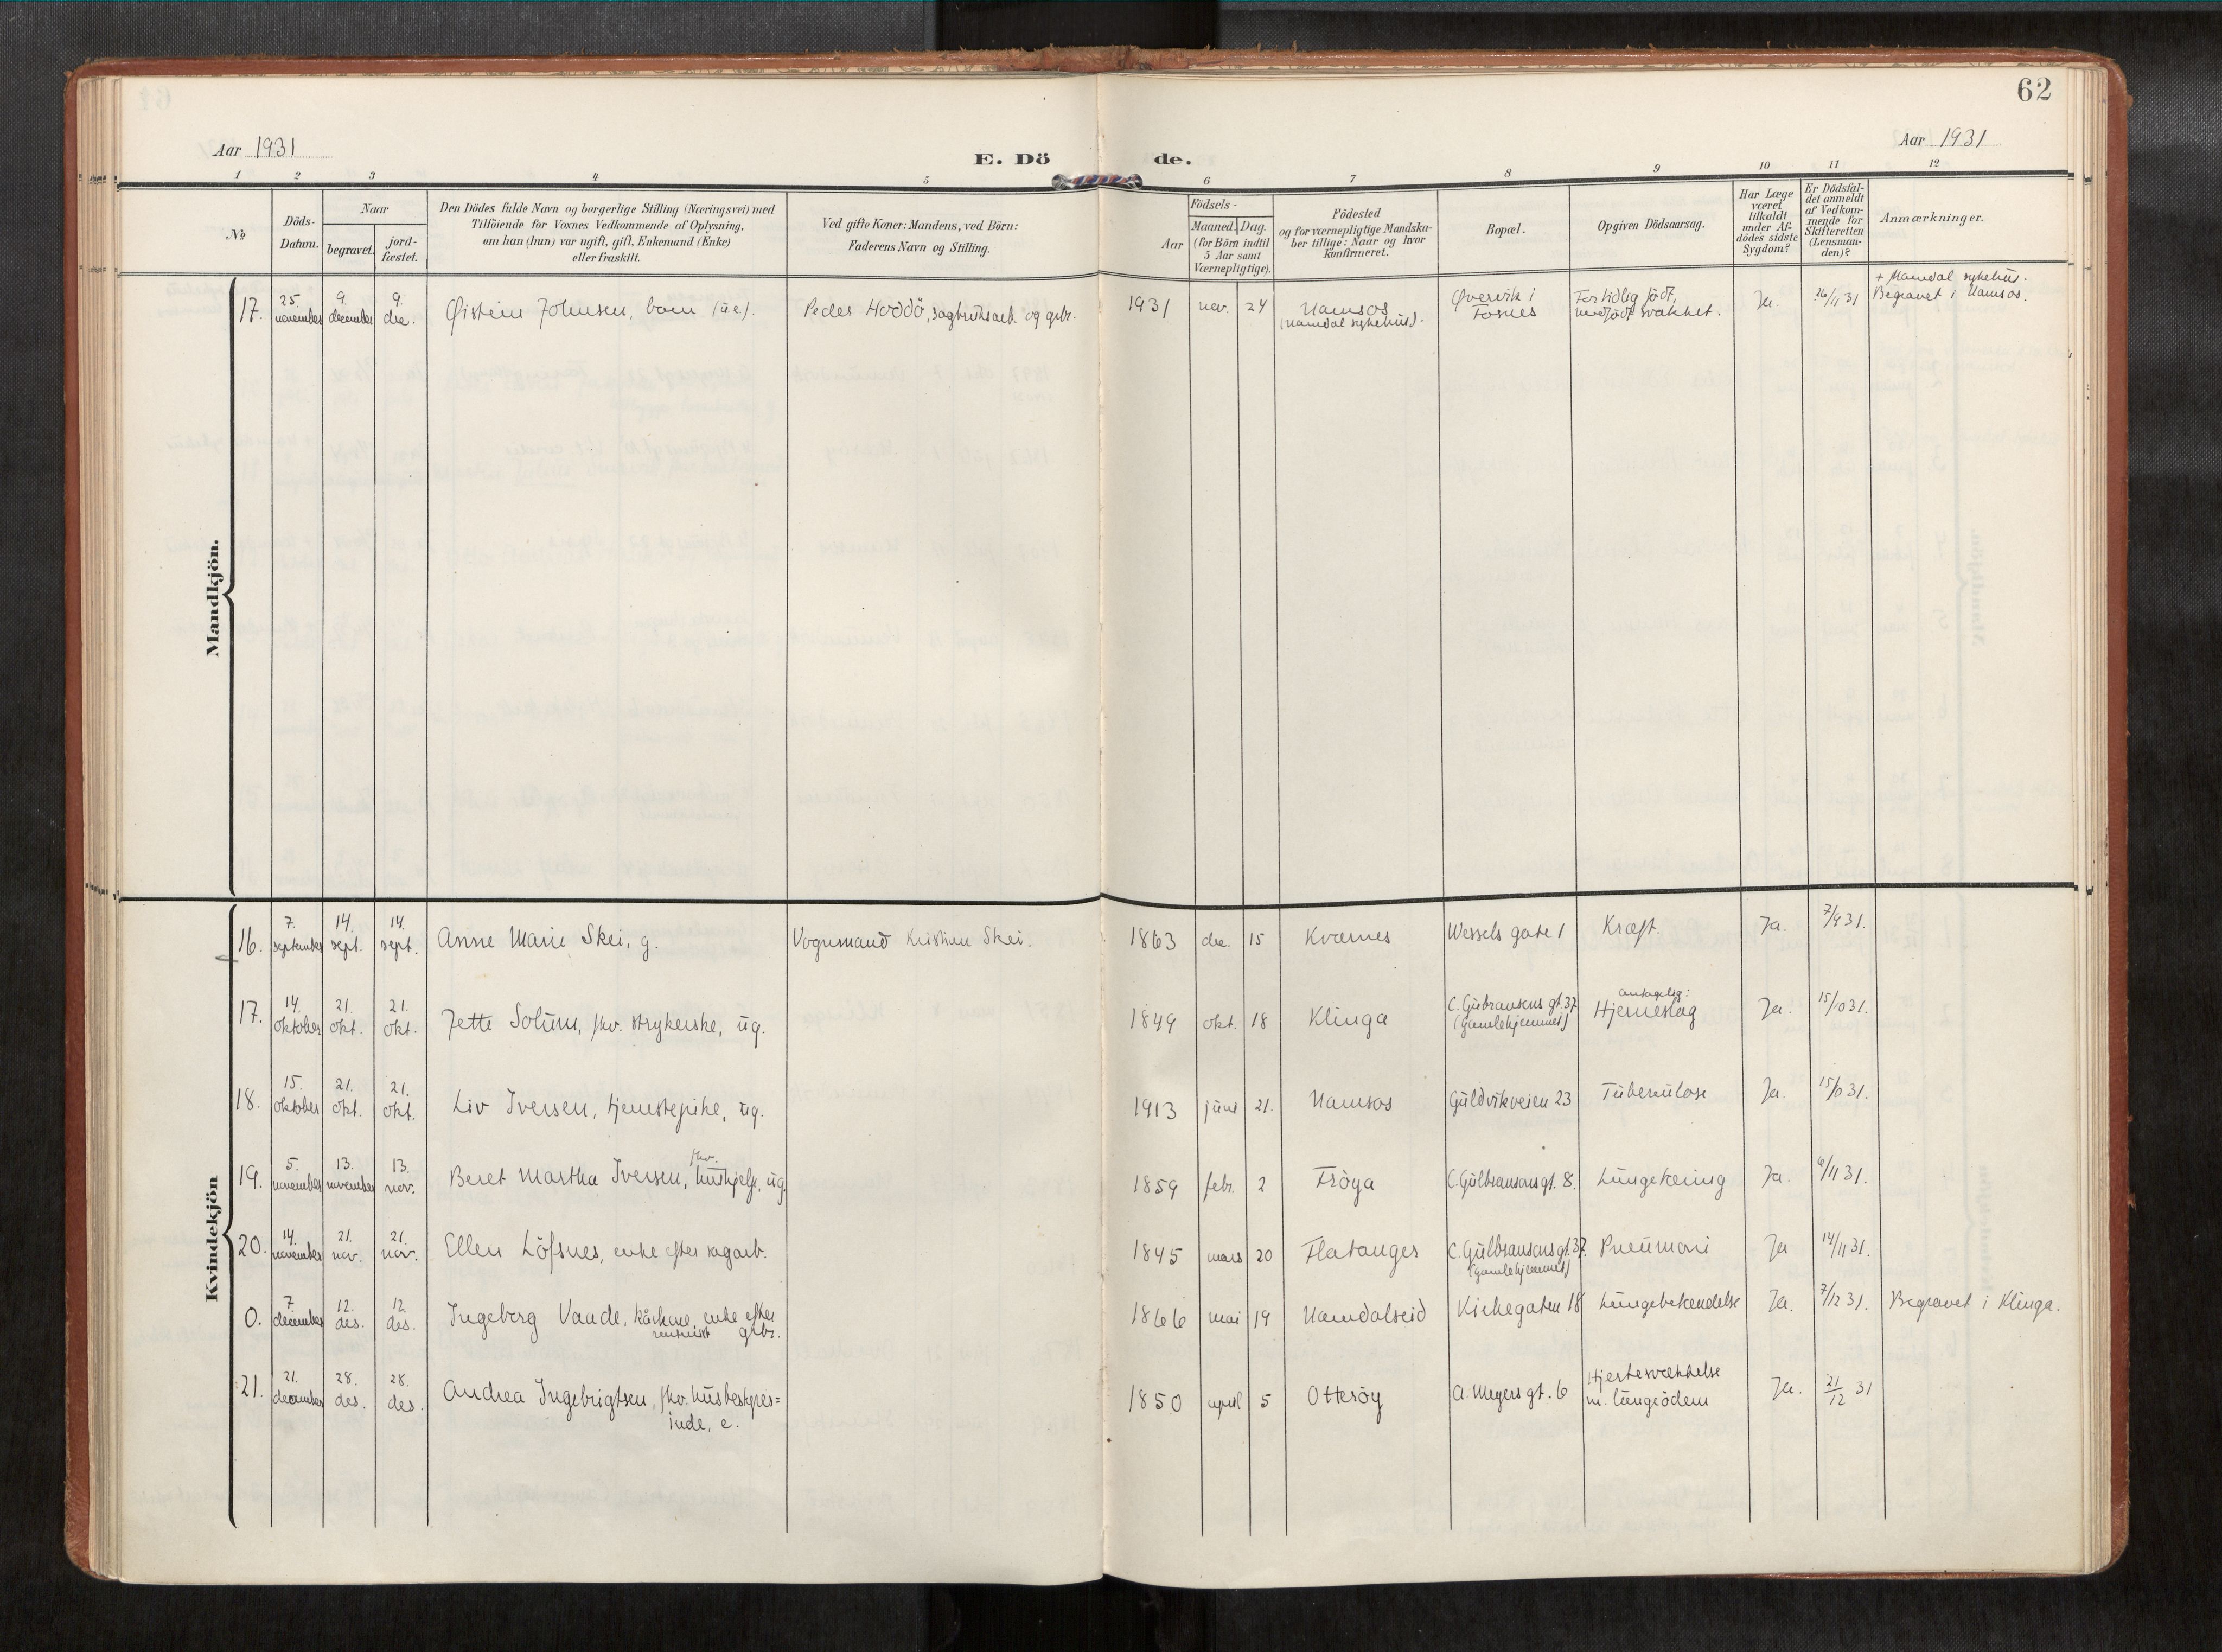 62
Aar 1931
Aar 1931
E. Dö de.
1 2 3 4 5 6 7 8 9 10 11 12
№
Döds-
Datum.
Naar
begravet.
jord-
fæstet.
Den Dödes fulde Navn og borgerlige Stilling (Næringsvei) med
Tilföiende for Voxnes Vedkommende af Oplysning,
om han (hun) var ugift, gift, Enkemand (Enke)
eller fraskilt.
Ved gifte Koner: Mandens, ved Börn:
Faderens Navn og Stilling.
Födsels-
Aar
Maaned. Dag.
(for Börn indtil
5 Aar samt
Værnepligtige).
Födested
og for værnepligtige Mandska-
ber tillige: Naar og hvor
konfirmeret.
Bopæl.
Opgiven Dödsaarsag.
Har Læge
været
tilkaldt
under Af-
dödes sidste
Sygdom?
Er Dödsfal-
det anmeldt
af Vedkom-
mende for
Skifteretten
(Lensman-
den)?
Anmærkninger.
Mandkjön.
17.
25.
november
9.
december
9.
de.
Øistein Johnsen, barn (u.e.).
Peder Hoddö, sagbruksarb. og grbr.
1931 nov. 24
Namsos
(Namdal sykehus).
Øvervik i
Fosnes
For tidlig född,
medfödt svakhet.
Ja.
26/11 31
+ Namdal sykehus.
Begravet i Namsos.
Kvindekjön
16.
7.
september
14.
sept.
14.
sept.
Anne Marie Skei, g.
Vognmand Kristian Skei.
1863 de. 15
Kvernes
Wessels gate 1
Kræft.
Ja.
7/9 31.
17.
14.
oktober
21.
okt.
21.
okt.
Jette Solum, fhv. strykerske, ug.
1849 okt. 18
Klinga
C. Gulbransens gt. 37
(Gamlehjemmet)
antagelig:
Hjerneslag
Ja.
15/10 31.
18.
15.
oktober
21.
okt.
21.
okt.
Liv Iversen, tjenestepike, ug.
1913 juni 21.
Namsos
Guldvikveien 23
Tuberkulose
Ja.
15/10 31.
19.
5.
november
13.
november
13.
nov.
fhv.
Beret Martha Iversen, hushjelp, ug.
1859 febr. 2
Fröya
C. Gulbransons gt. 8.
Ja.
6/11 31.
20.
14.
november
21.
nov.
21.
nov.
Ellen Löfsnes, enke efter sagarb.
1845 mars 20
Flatanger
C. Gulbransons gt. 37.
(Gamlehjemmet)
Pneumoni
Ja
14/11 31.
0.
7.
december
12.
des.
12.
des.
Ingeborg Vaade, kårkone, enke efter
grbr.
1866 mai 19
Namdalseid
Kirkegaten 18
Lungebetændelse
Ja.
7/12 31.
Begravet i Klinga.
21.
21.
december
28.
des.
28.
des.
Andrea Ingebrigtsen, fhv. husbestyrer=
inde, e.
1850 april 5
Otterøy
A. Meyers gt. 6
Hjertesvækkelse
m. lungeödem
Ja.
21/12 31